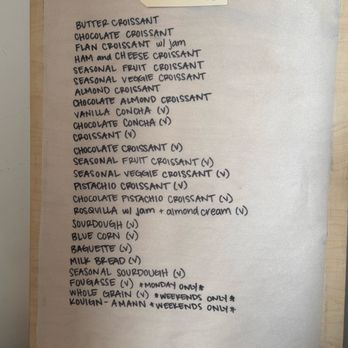 BUTTER CROISSANT
CHOCOLATE CROISSANT
FLAN CROISSANT w/ jam
HAM and CHEESE CROISSANT
SEASONAL FRUIT CROISSANT
SEASONAL VEGGIE CROISSANT
ALMOND CROISSANT
CHOCOLATE ALMOND CROISSANT
VANILLA CONCHA (V)
CHOCOLATE CONCHA (V)
CROISSANT (V)
CHOCOLATE CROISSANT (V)
SEASONAL FRUIT CROISSANT (V)
SEASONAL VEGGIE CROISSANT (V)
PISTACHIO CROISSANT (V)
CHOCOLATE PISTACHIO CROISSANT (V)
ROSQUILLA w/ jam + almond cream (V)
SOURDOUGH (V)
BLUE CORN (V)
BAGUETTE (V)
MILK BREAD (V)
SEASONAL SOURDOUGH (V)
FOUGASSE (V) *MONDAY ONLY*
WHOLE GRAIN (V) *WEEKENDS ONLY*
KOUIGN-AMANN *WEEKENDS ONLY*